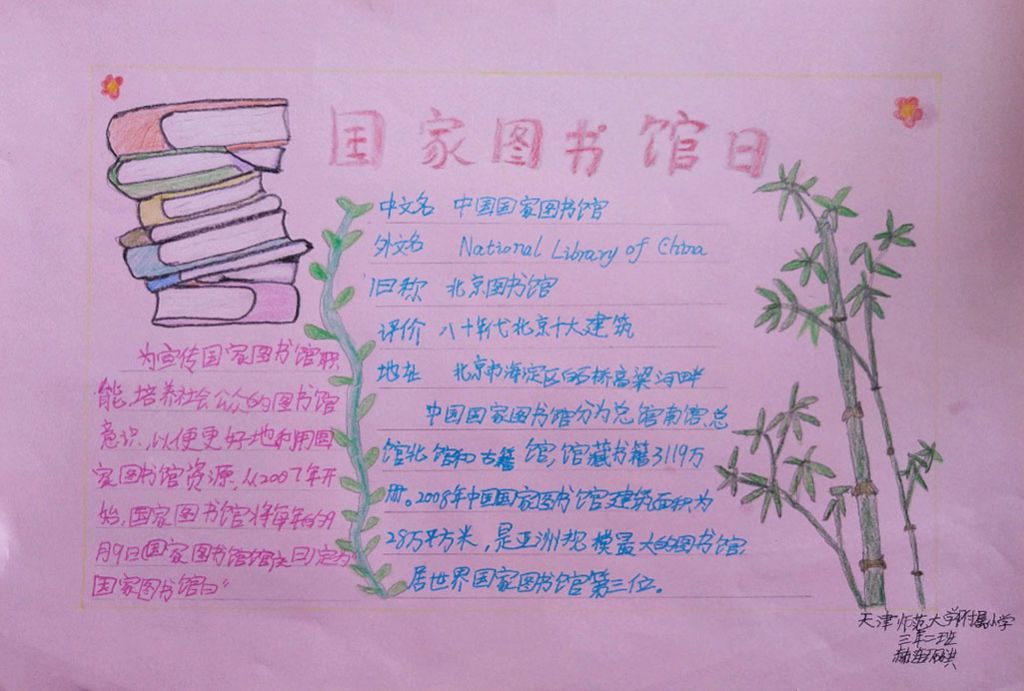 国家图书馆日
中文名 中国国家图书馆
外文名 National Library of China
旧称 北京图书馆
评价 八十年代北京十大建筑
地址 北京市海淀区白石桥高梁河畔
中国国家图书馆分为总馆南馆、总
馆北馆和古籍馆,馆藏书籍3119万
册。2008年中国国家图书馆建筑面积为
28万平方米,是亚洲规模最大的图书馆,
居世界国家图书馆第三位。
为宣传国家图书馆职
能,培养社会公众的图书馆
意识,以便更好地利用国
家图书馆资源,从2007年开
始,国家图书馆将每年的9月
月9日(国家图书馆馆庆日)定为“
国家图书馆日”
天津师范大学附属小学
三年二班